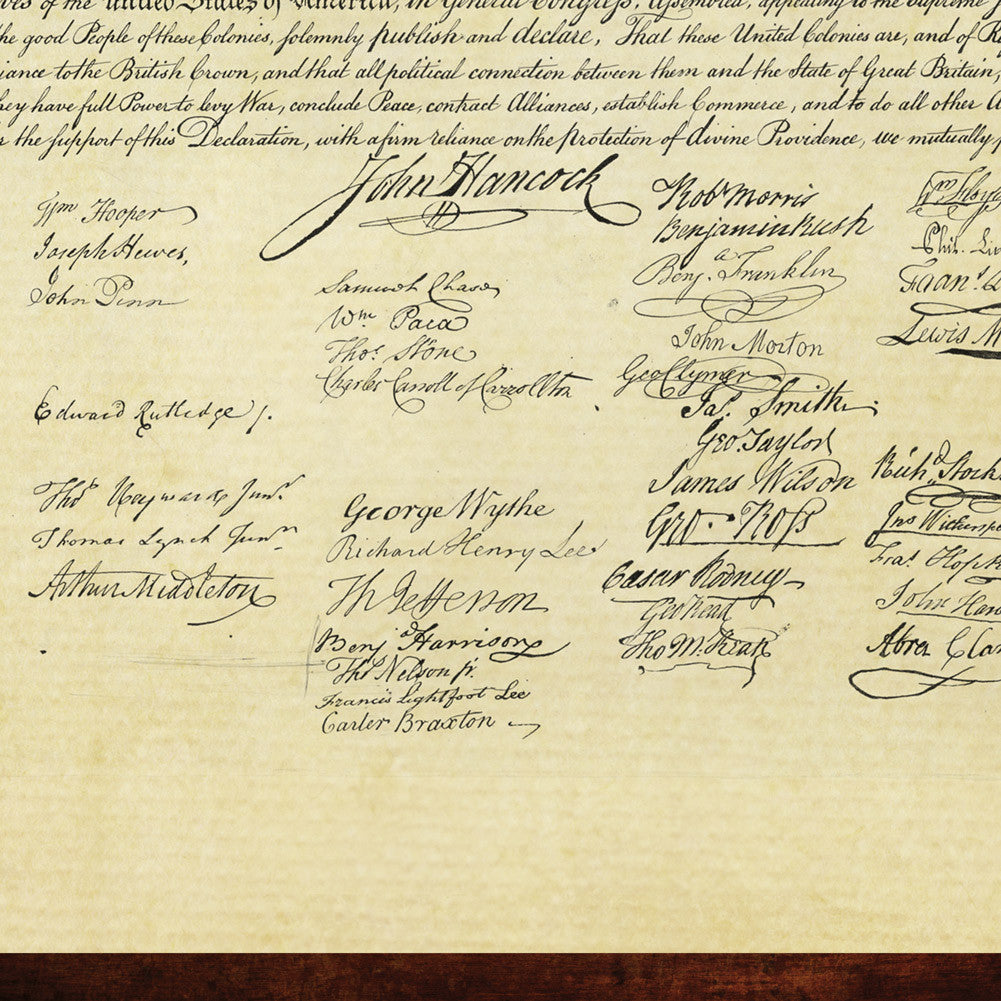 of the United States of America, in General Congress, Assembled, appealing to the Supreme
the good People of these Colonies, solemnly publish and declare, That these United Colonies are, and of R
iance to the British Crown, and that all political connection between them and the State of Great Britain,
they have full Power to levy War, conclude Peace, contract Alliances, establish Commerce, and to do all other A
r the support of this Declaration, with a firm reliance on the protection of divine Providence, we mutually p
Wm Hooper
Joseph Hewes,
John Penn
Edward Rutledge /.
Thos Heyward Junr.
Thomas Lynch Junr.
Arthur Middleton
John Hancock
Samuel Chase
Wm. Paca
Thos. Stone
Charles Carroll of Carrollton
George Wythe
Richard Henry Lee
Th Jefferson
Benja Harrison
Thos Nelson jr.
Francis Lightfoot Lee
Carter Braxton
Robt Morris
Benjamin Rush
Benja. Franklin
John Morton
Geo Clymer
Jas. Smith
Geo. Taylor
James Wilson
Geo. Ross
Caesar Rodney
Geo Read
Tho M:Kean
Wm Floyd
Phil. Liv
Frans. L
Lewis M
Richd. Stock
Jno Witherspo
Fras. Hopk
John Har
Abra Clar